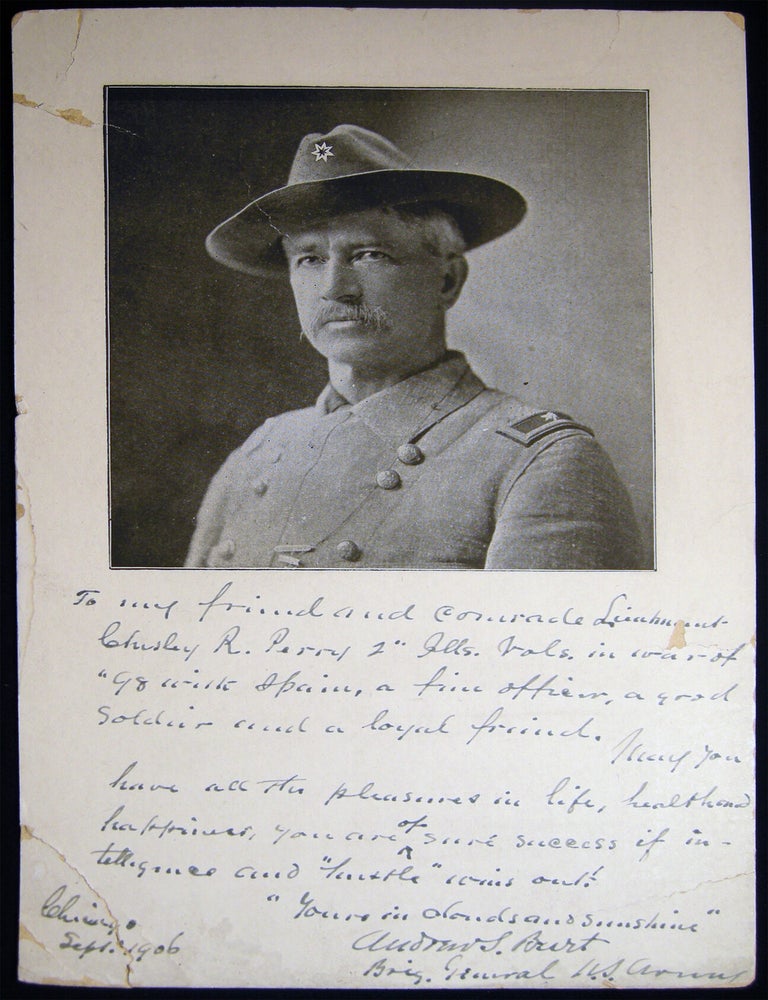 To my friend and comrade Lieutenant
Chesley R. Perry 2" Ills. Vols. in war of
"98 with Spain, a fine officer, a good
soldier and a loyal friend. May you
have all the pleasures in life, health and
happiness, you are of sure success if in-
telligence and "hustle" wins out!
"Yours in clouds and sunshine"
Andrew S. Burt
Brig. General U.S. Army
Chicago
Sept. 1906